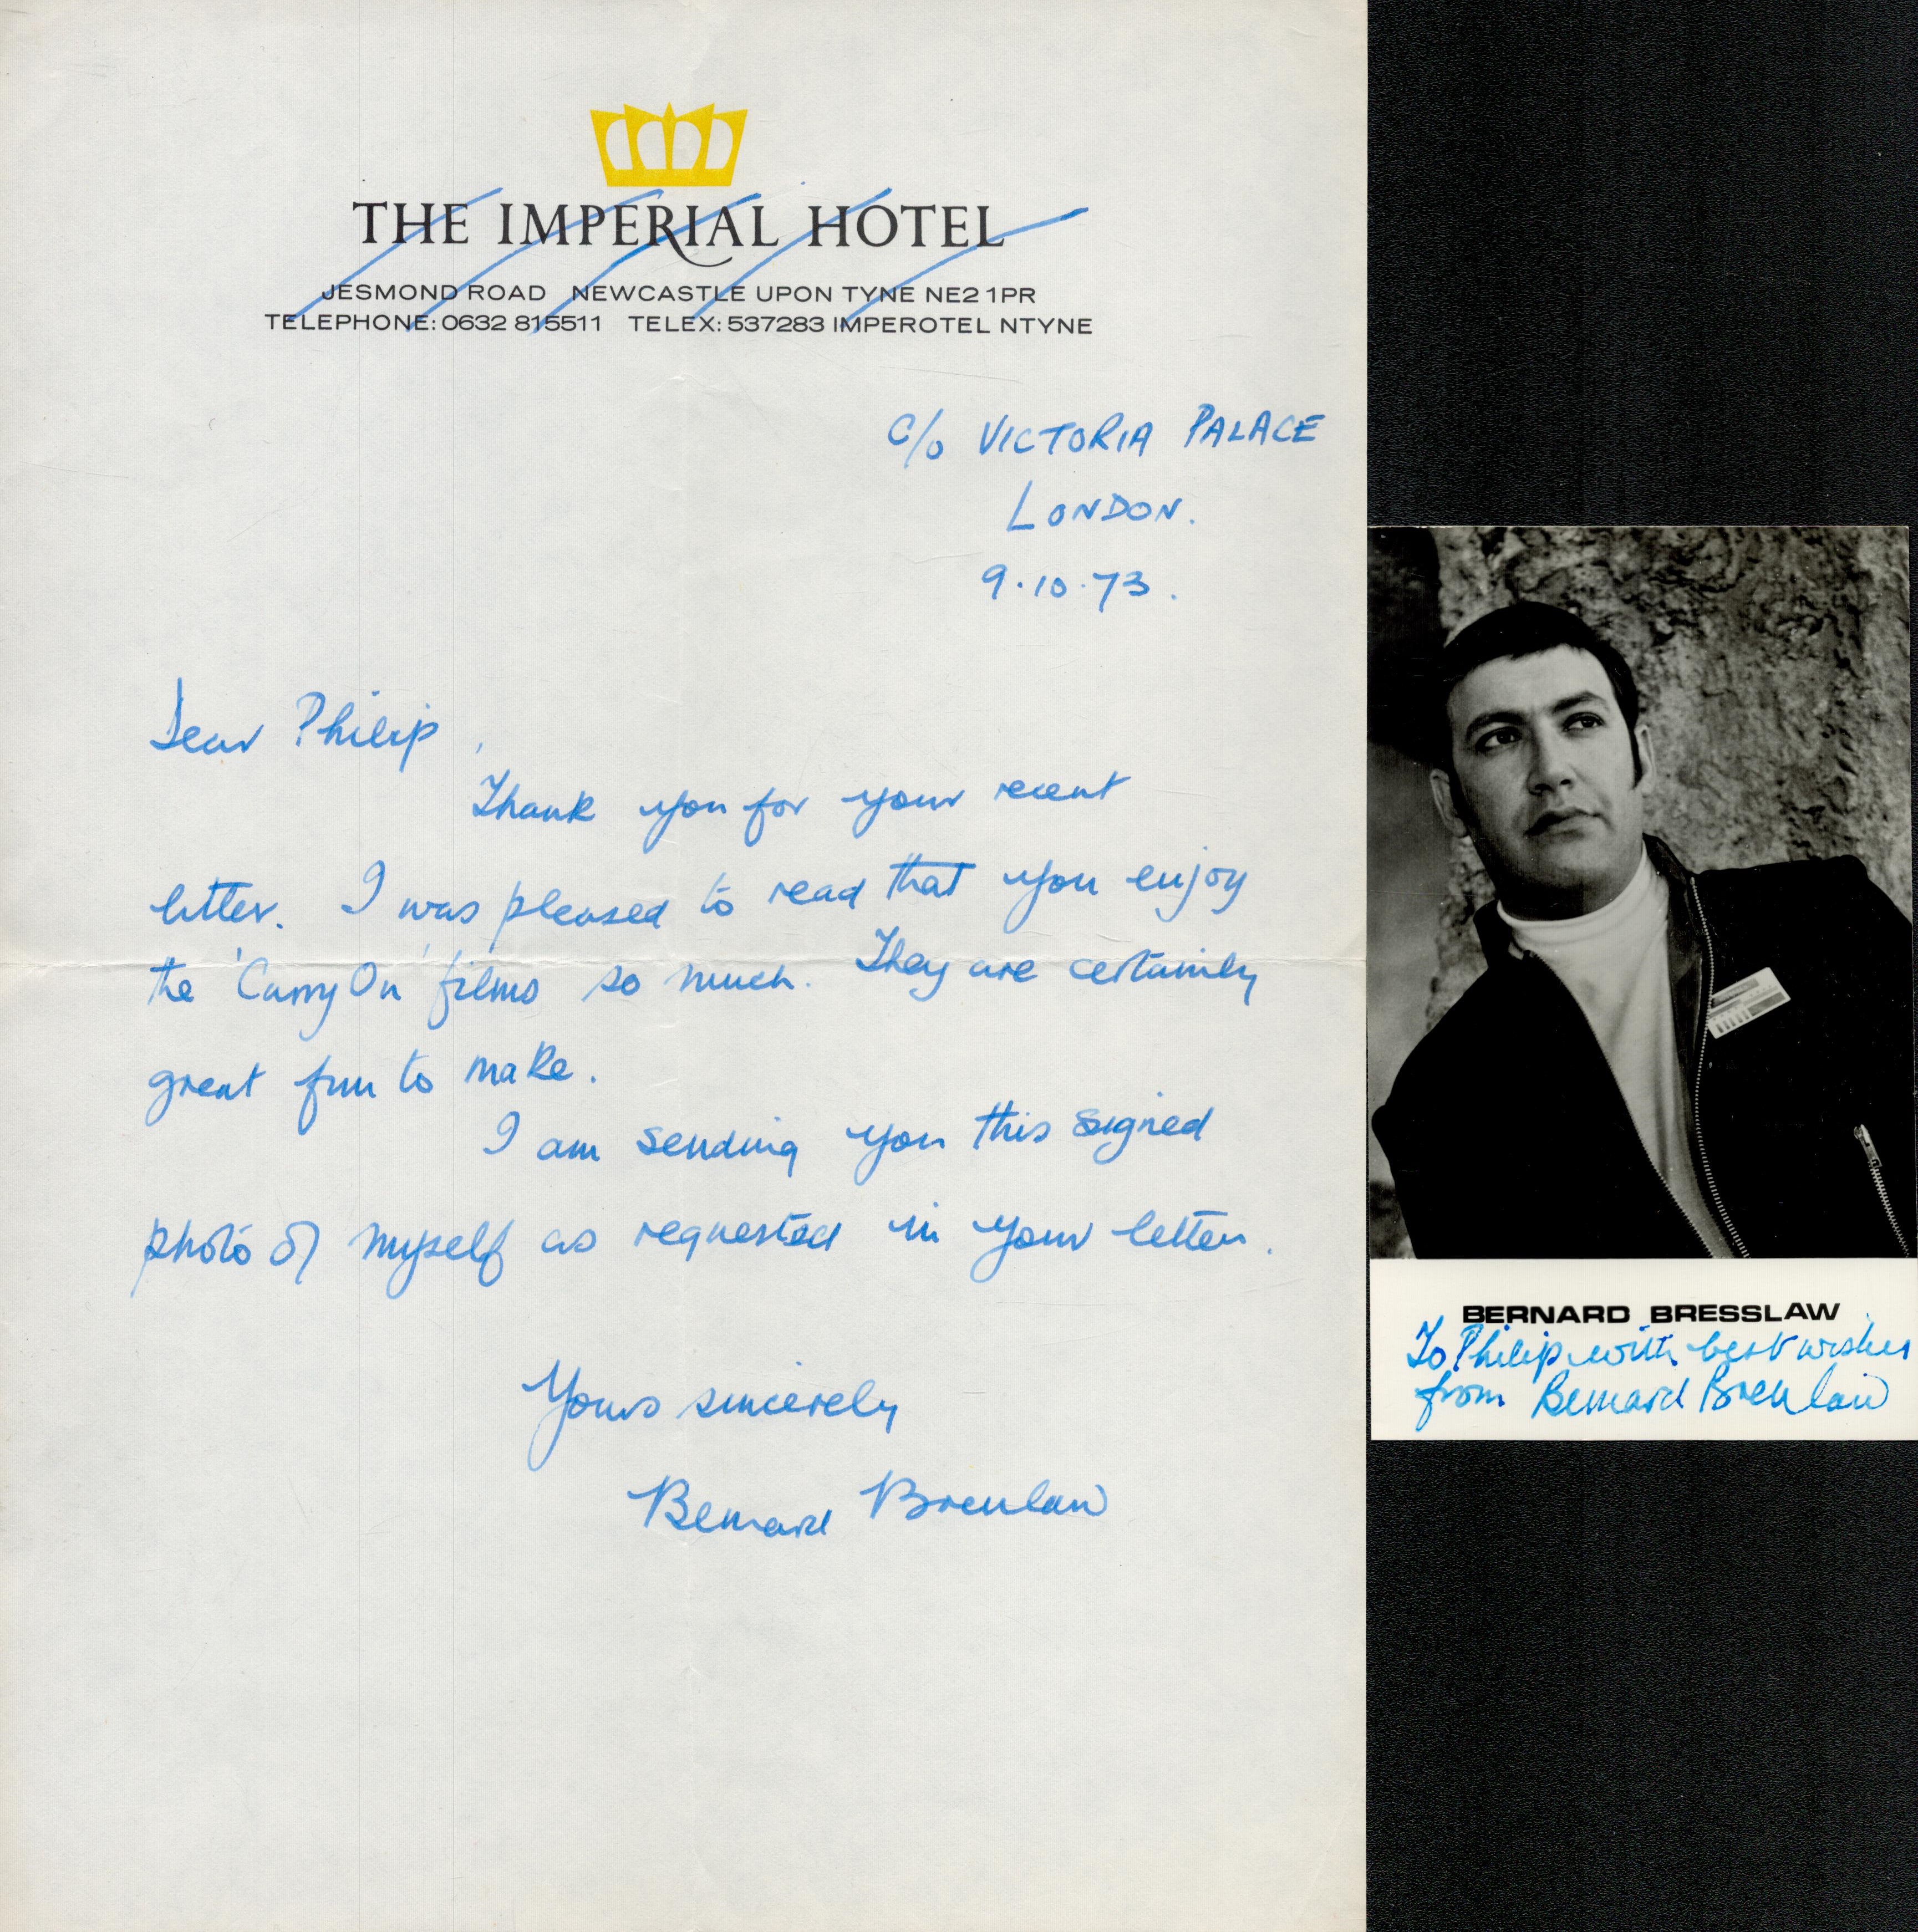 THE IMPERIAL HOTEL
JESMOND ROAD NEWCASTLE UPON TYNE NE2 1PR
TELEPHONE: 0632 815511 TELEX: 537283 IMPEROTEL NTYNE
C/o VICTORIA PALACE
LONDON.
9.10.73.
Dear Philip,
Thank you for your recent
letter. I was pleased to read that you enjoy
the 'Carry On' films so much. They are certainly
great fun to make.
I am sending you this signed
photo of myself as requested in your letter.
Yours sincerely
Bernard Bresslaw
BERNARD BRESSLAW
To Philip with best wishes
from Bernard Bresslaw